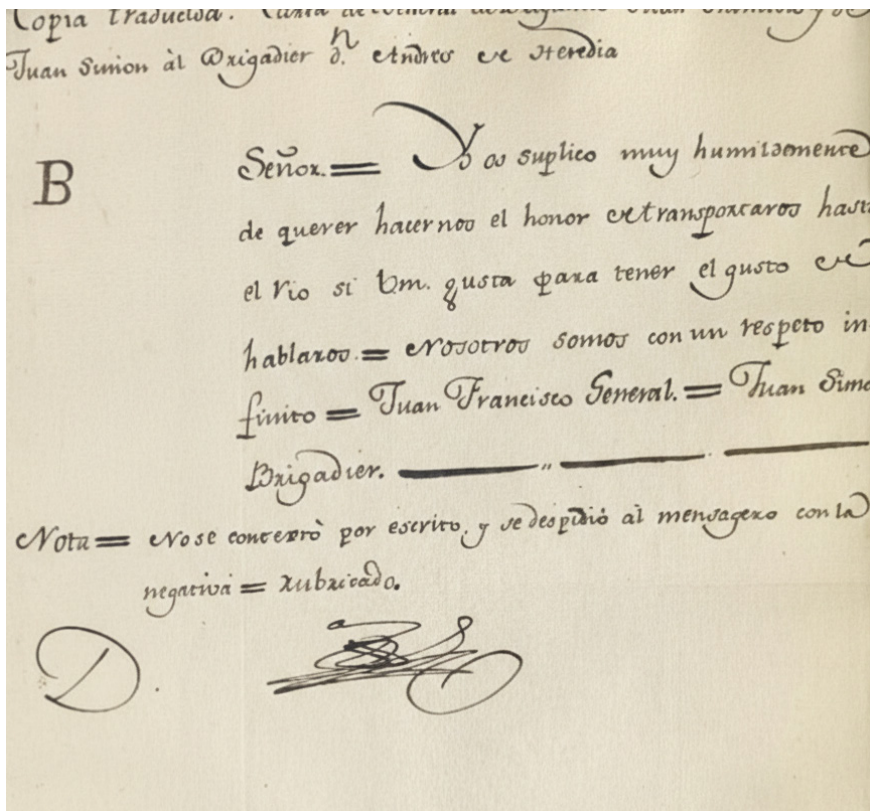 Copia traducida. Carta de General de Brigantes Juan Francisco y de
Juan Simon àl Brigadier d.n Andres de Heredia
B
Señor.= Yo os suplico muy humildemente
de querer hacernos el honor de transportaros hast
el rio si Vm. gusta para tener el gusto de
hablaros.= Nosotros somos con un respeto in-
finito = Juan Francisco General.= Juan Simo
Brigadier. — " — . —
Nota= No se contextò por escrito, y se despidió al mensagero con la
negativa = rubricado.
D.